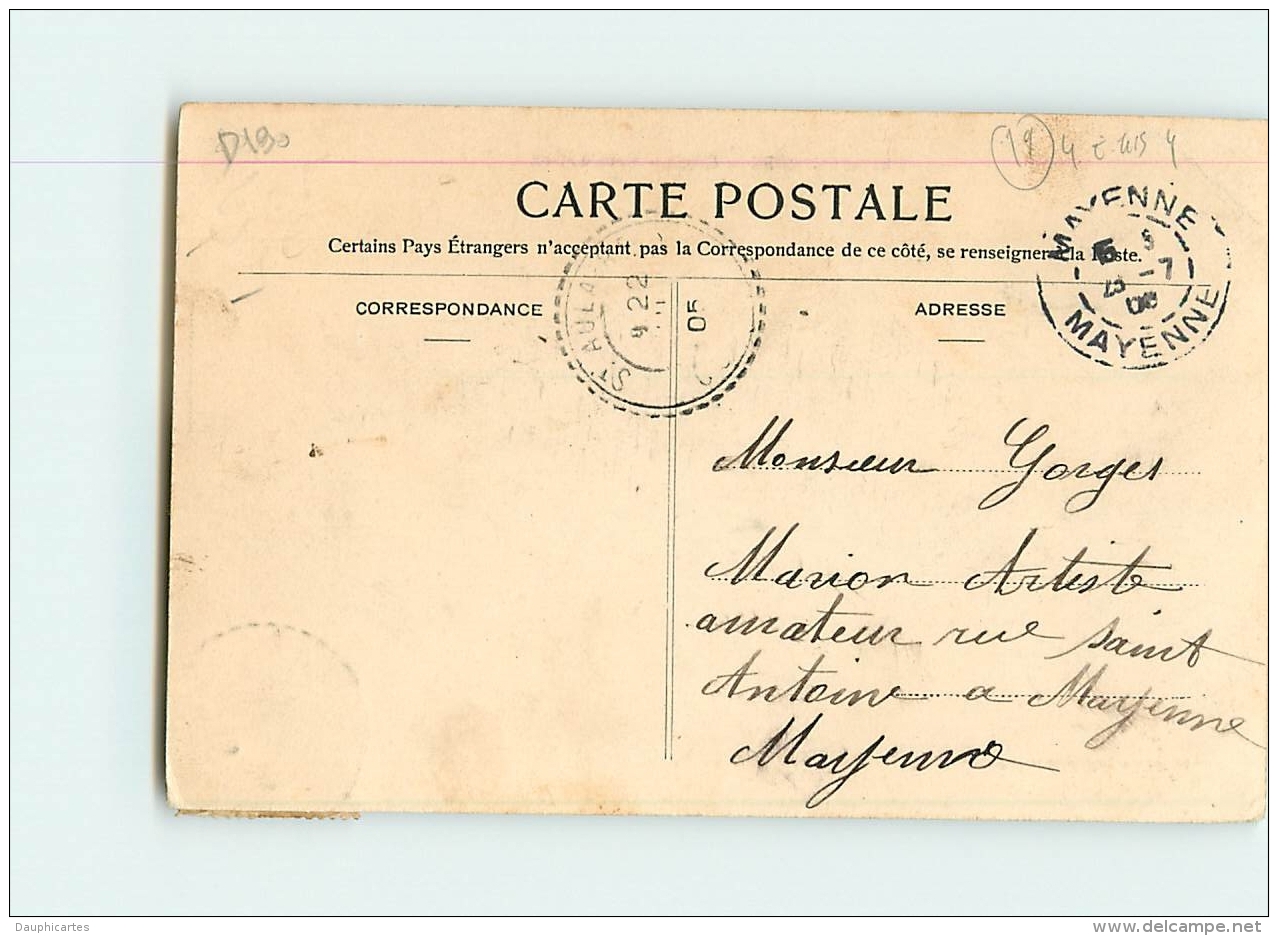 D190
19
CARTE POSTALE
Certains Pays Étrangers n'acceptant pas la Correspondance de ce côté, se renseigner à la Poste.
MAYENNE
5
-7
MAYENNE
ST. AULA
22
05
CORRESPONDANCE
ADRESSE
Monsieur Gorges
Marion Artiste
amateur rue saint
Antoine a Mayenne
Mayenne
Dauphicartes
delcampe.net